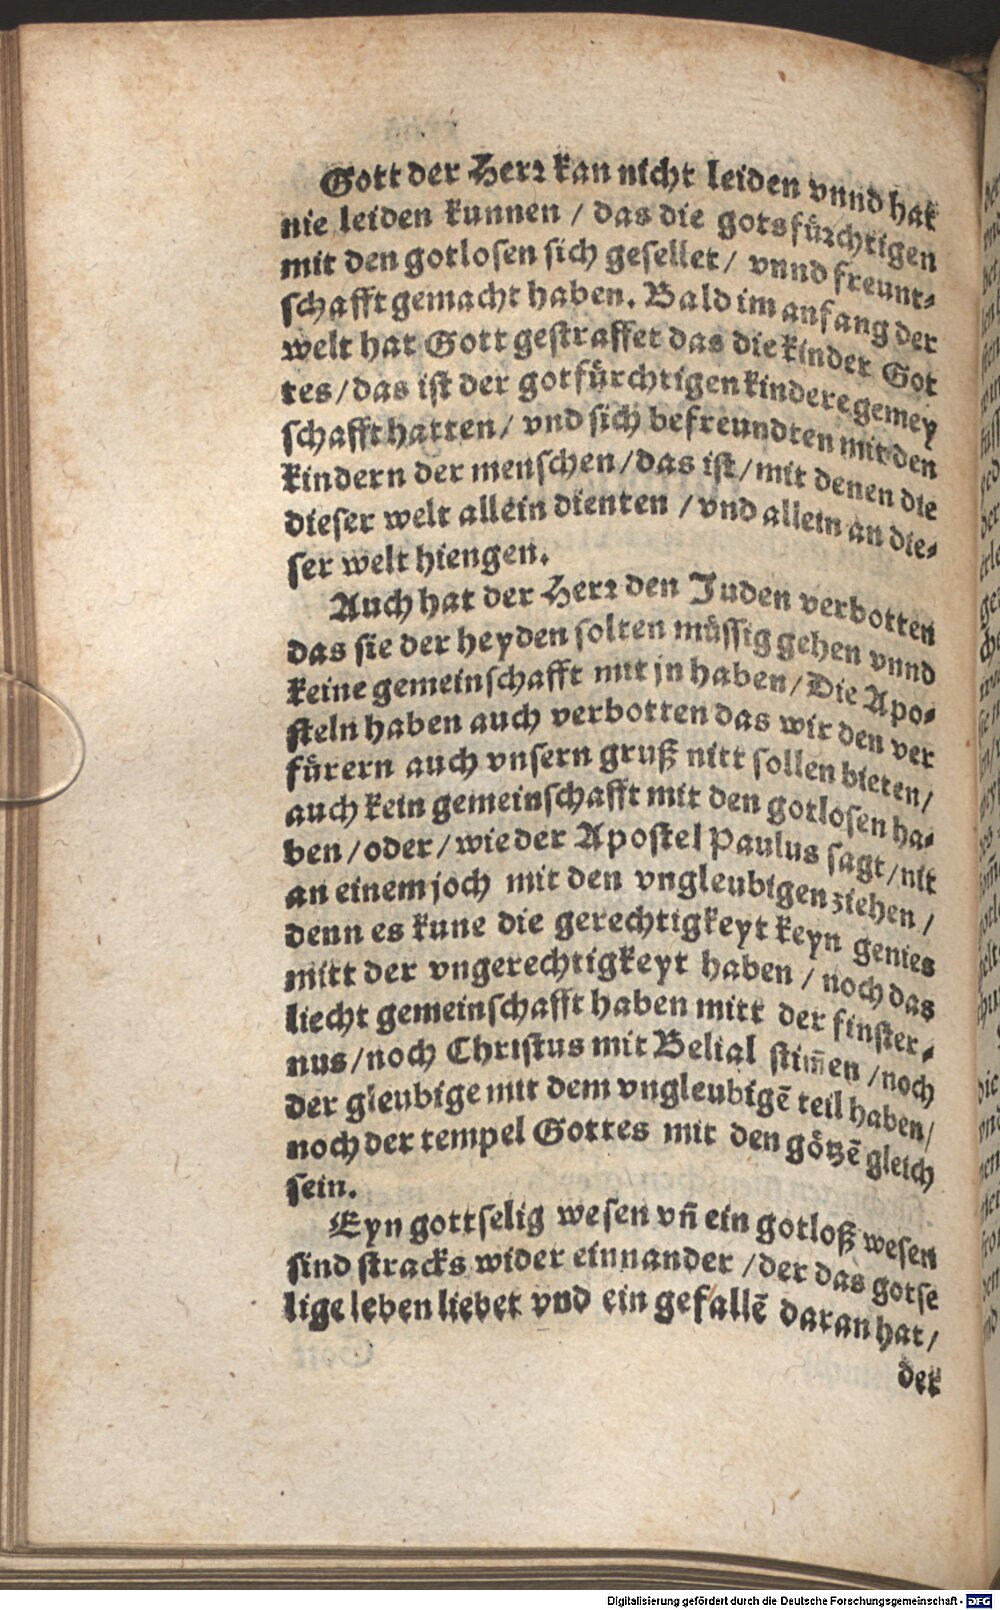 Gott der Herꝛ kan nicht leiden vnnd hat
nie leiden kunnen / das die gotsfuͤꝛchtigen
mit den gotlosen sich gesellet / vnnd freunt⸗
schafft gemacht haben. Bald im anfang der
welt hat Gott gestraffet das die kinder Got
tes / das ist der gotfuͤrchtigen kindere gemey
schafft hatten / vnd sich befreundten mit den
kindern der menschen / das ist / mit denen die
dieser welt allein dienten / vnd allein an die⸗
ser welt hiengen.
Auch hat der Herꝛ den Juden verbotten
das sie der heyden solten muͤssig gehen vnnd
keine gemeinschafft mit jn haben / Die Apo⸗
steln haben auch verbotten das wir den ver
fuͤrern auch vnsern gruß nitt sollen bieten /
auch kein gemeinschafft mit den gotlosen ha⸗
ben / oder / wie der Apostel Paulus sagt / nit
an einem joch mit den vngleubigen ziehen /
denn es kune die gerechtigkeyt keyn genies
mitt der vngerechtigkeyt haben / noch das
liecht gemeinschafft haben mitt der finster⸗
nus / noch Christus mit Belial stim̃en / noch
der gleubige mit dem vngleubigẽ teil haben /
noch der tempel Gottes mit den goͤtzẽ gleich
sein.
Eyn gottselig wesen vñ ein gotloß wesen
sind stracks wider einnander / der das gotse
lige leben liebet vnd ein gefallẽ daran hat /
der
Digitalisierung gefördert durch die Deutsche Forschungsgemeinschaft - DFG